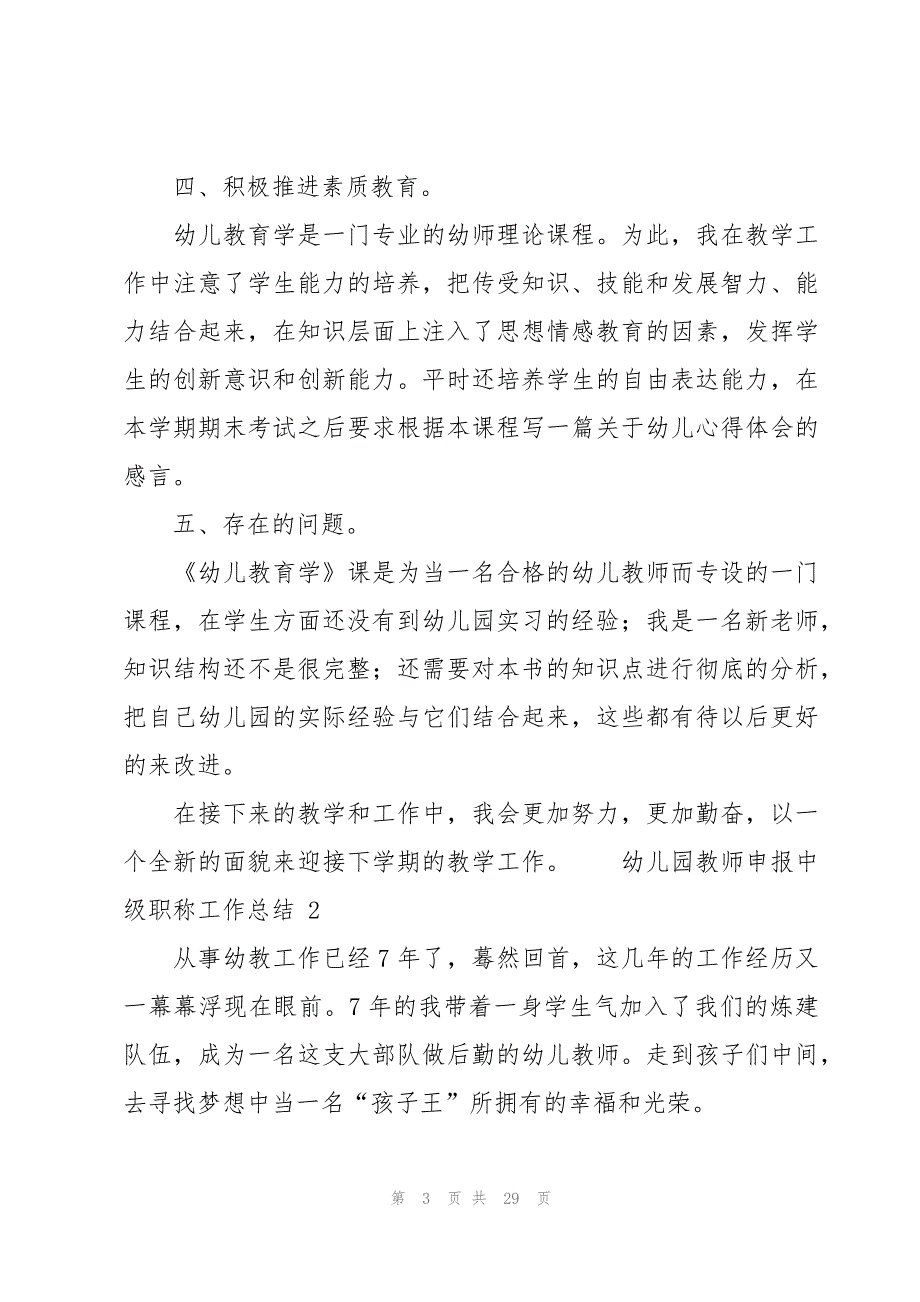 四、积极推进素质教育。
幼儿教育学是一门专业的幼师理论课程。为此，我在教学工
作中注意了学生能力的培养，把传受知识、技能和发展智力、能
力结合起来，在知识层面上注入了思想情感教育的因素，发挥学
生的创新意识和创新能力。平时还培养学生的自由表达能力，在
本学期期末考试之后要求根据本课程写一篇关于幼儿心得体会的
感言。
五、存在的问题。
《幼儿教育学》课是为当一名合格的幼儿教师而专设的一门
课程，在学生方面还没有到幼儿园实习的经验；我是一名新老师，
知识结构还不是很完整；还需要对本书的知识点进行彻底的分析，
把自己幼儿园的实际经验与它们结合起来，这些都有待以后更好
的来改进。
在接下来的教学和工作中，我会更加努力，更加勤奋，以一
个全新的面貌来迎接下学期的教学工作。 幼儿园教师申报中
级职称工作总结 2
从事幼教工作已经7年了，蓦然回首，这几年的工作经历又
一幕幕浮现在眼前。7年的我带着一身学生气加入了我们的炼建
队伍，成为一名这支大部队做后勤的幼儿教师。走到孩子们中间，
去寻找梦想中当一名“孩子王”所拥有的幸福和光荣。
第 3 页 共 29 页